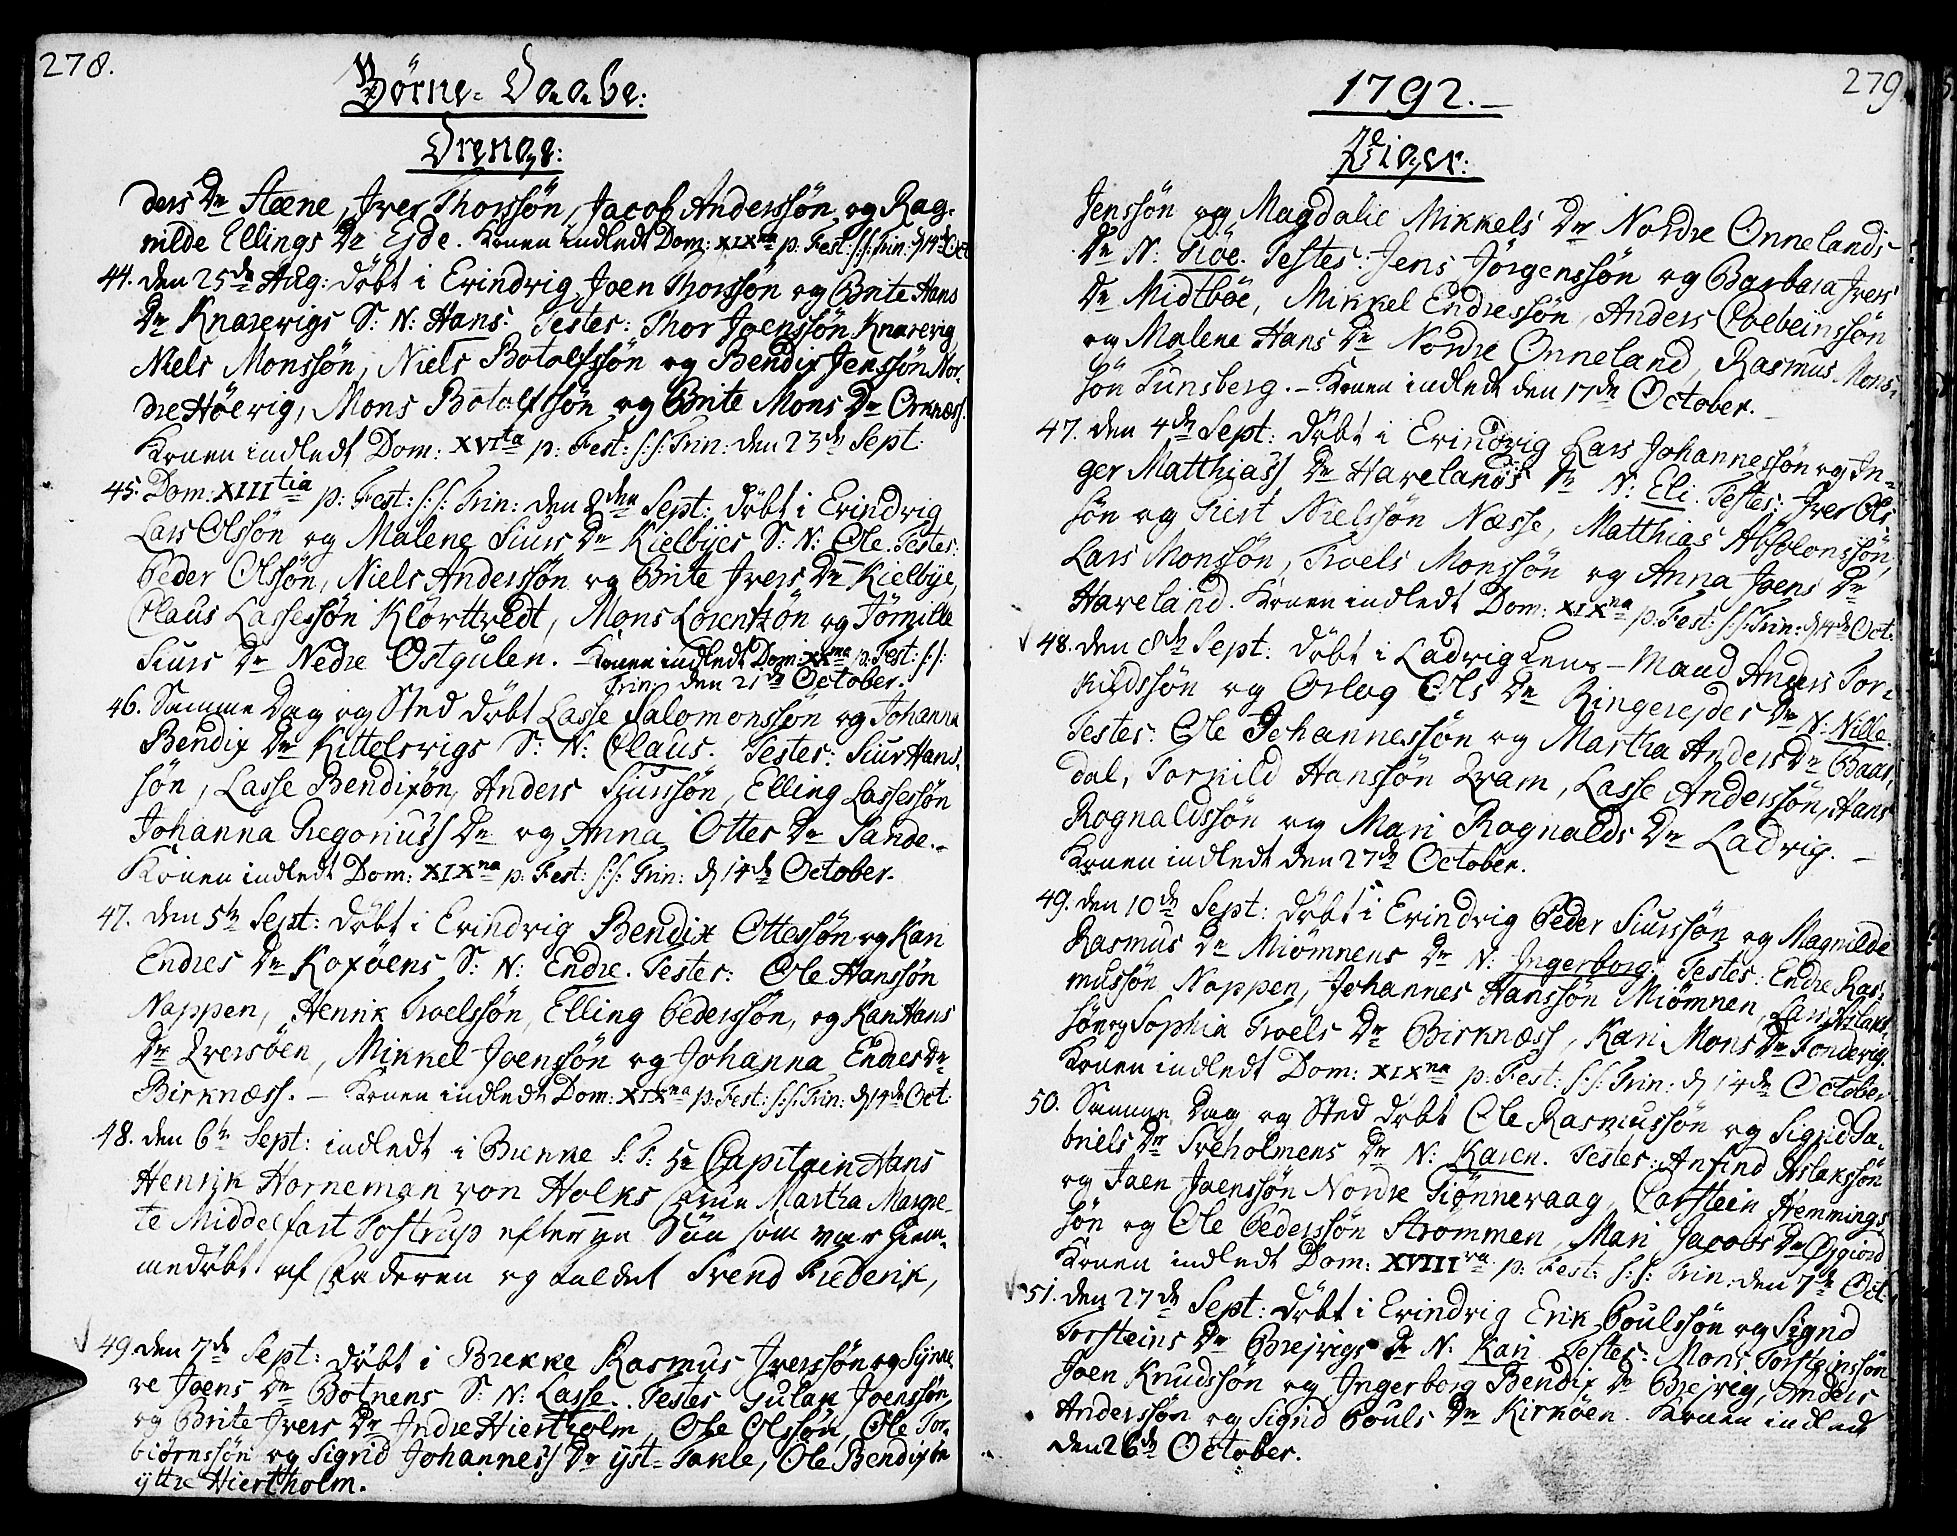 278.
Börne-Daabe:
Drenge:
ders Dr Steene, Iver Thorssön, Jacob Anderssön og Rag-
nilde Ellings Dr Ejde. Konen indledt Dom: XIXna p: Fest: S:S: Trin: d 14de Oct
44. den 25de Aug: döbt i Evindvig Joen Thorssön og Brite Hans
Dr Knarevigs S: N: Hans. Testes: Thor Joenssön Knarevig,
Niels Monssön, Niels Botolfssön og Bendix Jenssön Nor-
dre Höevig, Mons Botolfssön og Brite Mons Dr Ornæss.
Konen indledt Dom: XVIta p: Fest: S:S: Trin: den 23de Sept:
45. Dom: XIIItia p: Fest: S:S: Trin: den 2den Sept: döbt i Evindvig
Lars Olssön og Malene Siurs Dr Kielbyes S: N: Ole. Testes:
Peder Olssön, Niels Anderssön og Brite Ivers Dr Kielbye,
Claus Lassessön Klörttvedt, Mons Lorentzön og Jörnille
Siurs Dr Nedre Östgulen. Konen indledt Dom: XXma p: Fest: S:S:
Trin: den 21de October.
46. Samme Dag og Sted döbt Lasse Salomonssön og Johanna
Bendix Dr Kittelsvigs S: N: Claus. Testes: Siur Hans-
sön, Lasse Bendixön, Anders Siurssön, Elling Lassessön
Johanna Gregoriuss Dr og Anna Ottes Dr Sande.
Konen indledt Dom: XIXna p: Fest: S:S: Trin: d 14de October.
47. den 5te Sept: döbt i Evindvig Bendix Ottessön og Kari
Endres Dr Koxöens S: N: Endre. Testes: Ole Hanssön
Nappen, Henrik Troelssön, Elling Pederssön, og Kari Hans
Dr Qversöen, Mikkel Joenssön og Johanna Endres Dr
Birknæss. – Konen indledt Dom: XIXna p: Fest: S:S: Trin: d 14de Oct:
48. den 6te Sept: indledt i Brekke S: T: Hr Capitain Hans
Henrik Horneman von Holks Frue Martha Margre-
te Middelfart Tostrup efter en Sön som var hiem-
medöbt af Faderen og kaldet Svend Frederik,
49. den 7de Sept: döbt i Brekke Rasmus Iverssön og Synne-
ve Joens Dr Botnens S: N: Lasse. Testes Gulak Joenssön,
og Brite Ivers Dr Indre Hiertholm, Ole Olssön, Ole Tor-
biörnssön og Sigrid Johanness Dr yst- Takle, Ole Bendixön
yttre Hiertholm.
1792.
279
Piger:
Jenssön og Magdalie Mikkels Dr Nordre Onnelands
Dr N: Siöe. Testes: Jens Jörgenssön og Barbara Ivers
Dr Midtböe, Mikkel Endressön, Anders Colbeinssön
og Malene Hans Dr Nordre Onneland, Rasmus Mons-
sön Tunsberg. – Konen indledt den 17de October.
47. den 4de Sept: döbt i Evindvig Lars Johannessön og In-
ger Matthiass Dr Havelands Dr N: Eli. Testes: Iver Ols-
sön og Siert Nielssön Næsse, Matthias Absolonssön,
Lars Monssön, Troels Monssön og Anna Joens Dr
Haveland. Konen indledt Dom: XIXna p: Fest: S:S: Trin: d 14de Oct.
48. den 8de Sept: döbt i Ladvig Lens-Mand Anders Tor-
kildssön og Orlog Ols Dr Ringerejdes Dr N: Nille.
Testes: Ole Johannessön og Martha Anders Dr Baar-
dal, Torkild Hanssön Qvam, Lasse Anderssön, Hans
Rognaldssön og Mari Rognalds Dr Ladvig. –
Konen indledt den 27de October.
49. den 10de Sept: döbt i Evindvig Peder Siurssön og Magnilde
Rasmus Dr Miömnens Dr N: Ingerborg. Testes: Endre Ras-
mussön Nappen, Johannes Hanssön Miömnen, Lars Aslaks-
sön og Sophia Troels Dr Birknæss, Kari Mons Dr Tondevig.
Konen indledt Dom: XIXna p: Fest: S:S: Trin: d 14de October
50. Samme Dag og Sted döbt Ole Rasmussön og Sigrid Ga-
briels Dr Treholmens Dr N: Karen. Testes: Anfind Aslakssön
og Joen Joenssön Nordre Giönneraag, Carstein Hemmings-
sön og Ole Pederssön Strommen, Mari Jacobs Dr Osgiord
Konen indledt Dom: XVIIIva p: Fest: S:S: Trin: den 7de Oct.
51. den 27de Sept: döbt i Evindvig Erik Poulssön og Sigrid
Torsteins Dr Brejvigs Dr N: Kari. Testes: Mons Torsteinssön
Joen Knudssön og Ingerborg Bendix Dr Brejvig, Anders
Anderssön og Sigrid Pouls Dr Kirköen. Konen indledt
den 26de October.